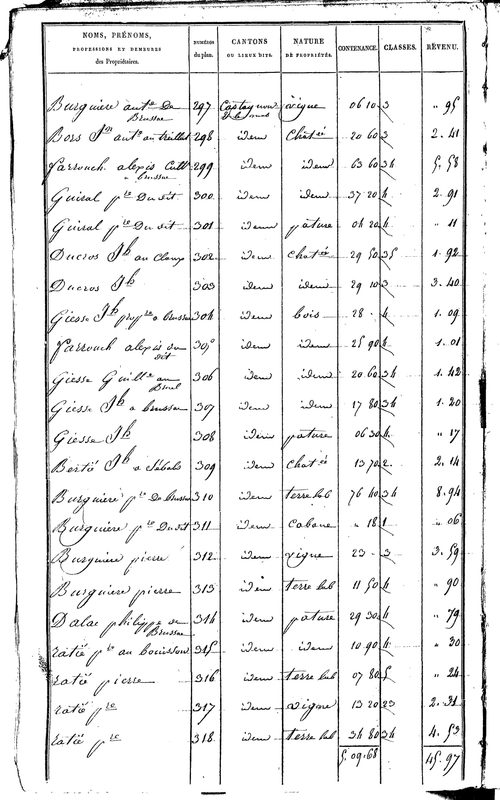 NOMS, PRÉNOMS, PROFESSIONS ET DEMEURES des Propriétaires. NUMÉROS du plan. CANTONS OU LIEUX DITS. NATURE DE PROPRIÉTÉS. CONTENANCE. CLASSES. REVENU.
Burguiere ant.e De Brusse 297 vigne 06 10 3 " 95
Bors J.n ant.e au treillet 298 idem chat.é 20 60 3 2. 41
farrouch alexis cult.r a brusse 299 idem idem 63 60 34 5. 58
Guiral p.re Du dit 300 idem idem 37 20 4 2. 91
Guiral p.re Du dit 301 idem pâture 04 20 4 " 11
Ducros J.h au clamp 302 idem chat.é 29 50 35 1. 92
Ducros J.h 303 idem idem 29 10 3 3. 40
Giesse J.h prop.re a brusse 304 idem bois 28 . 4 1. 09
farrouch alexis du dit 305 idem idem 25 90 4 1. 01
Giesse Guill.e au 306 idem idem 20 60 34 1. 42
Giesse J.h a brusse 307 idem idem 17 80 34 1. 20
Giesse J.h 308 idem pature 06 30 4 " 17
Bertié J.h a Sébals 309 idem chat.é 13 70 2. 2. 14
Burguiere p.re De brusse 310 idem terre lab 76 40 34 8. 94
Burguiere p.re Du dit 311 idem cabane " 18 1 " 06
Burguiere pierre 312 idem vigne 23 . 3 3. 59
Burguiere pierre 313 idem terre lab 11 50 4 " 90
Dalac philippe de Brusse 314 idem pature 29 30 4 " 79
ratié p.re au bouisson 315 idem idem 10 90 4 " 30
ratié pierre 316 idem terre lab 07 80 5 " 24
ratié p.re 317 idem vigne 13 20 23 2. 31
ratié p.re 318 idem terre lab 34 80 34 4. 53
5. 09. 68 45. 97